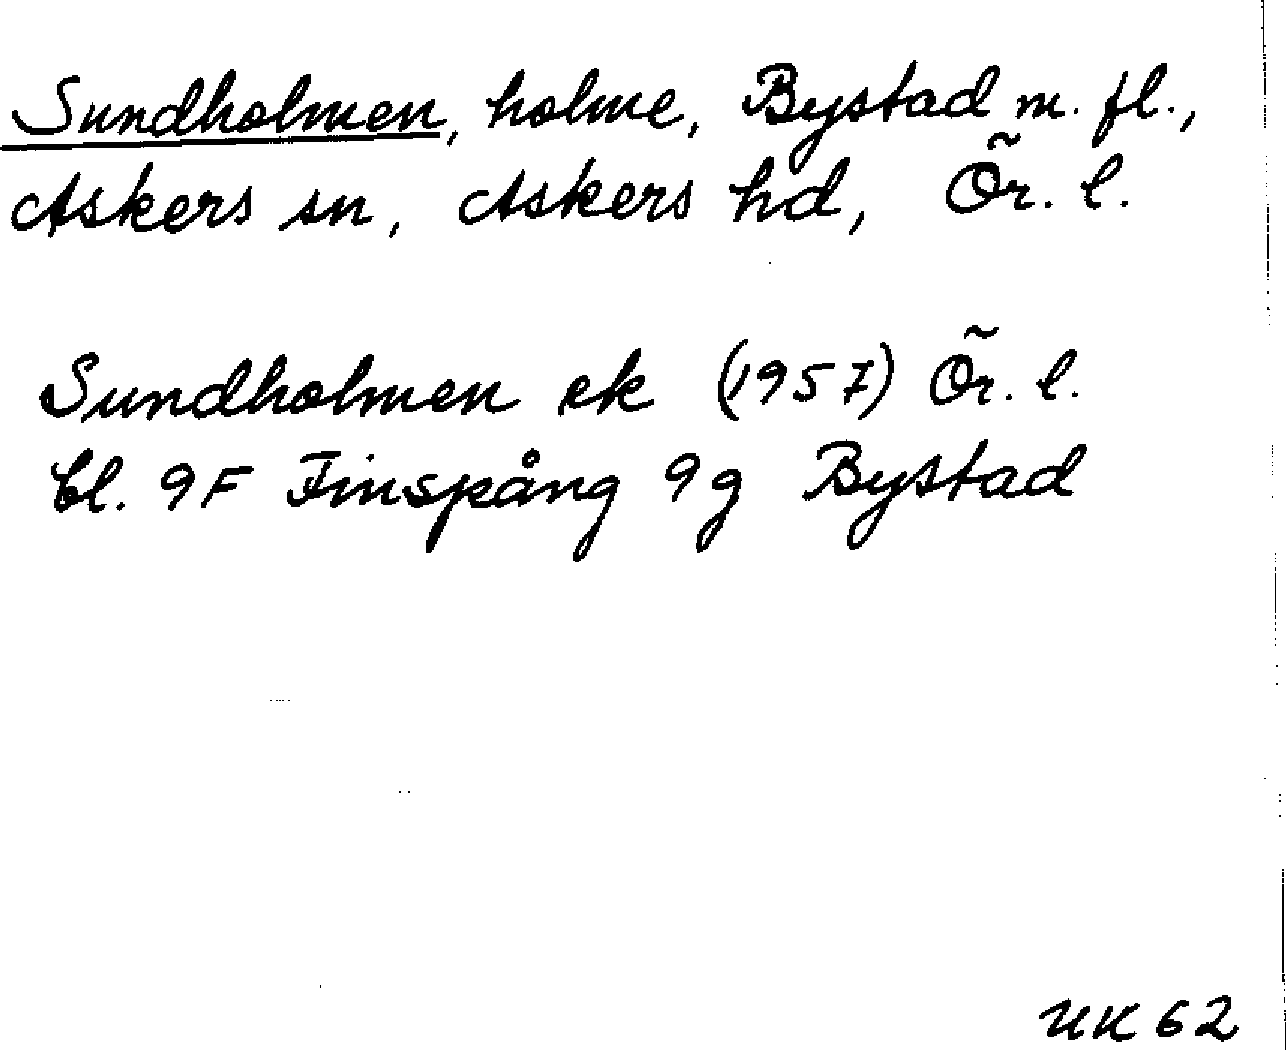 Sundholmen, holme, Bystad m. fl.,
Askers sn, Askers hd, Ör. l.
Sundholmen ek (1957) Ör. l.
bl. 9F Finspång 9g Bystad
UK 62